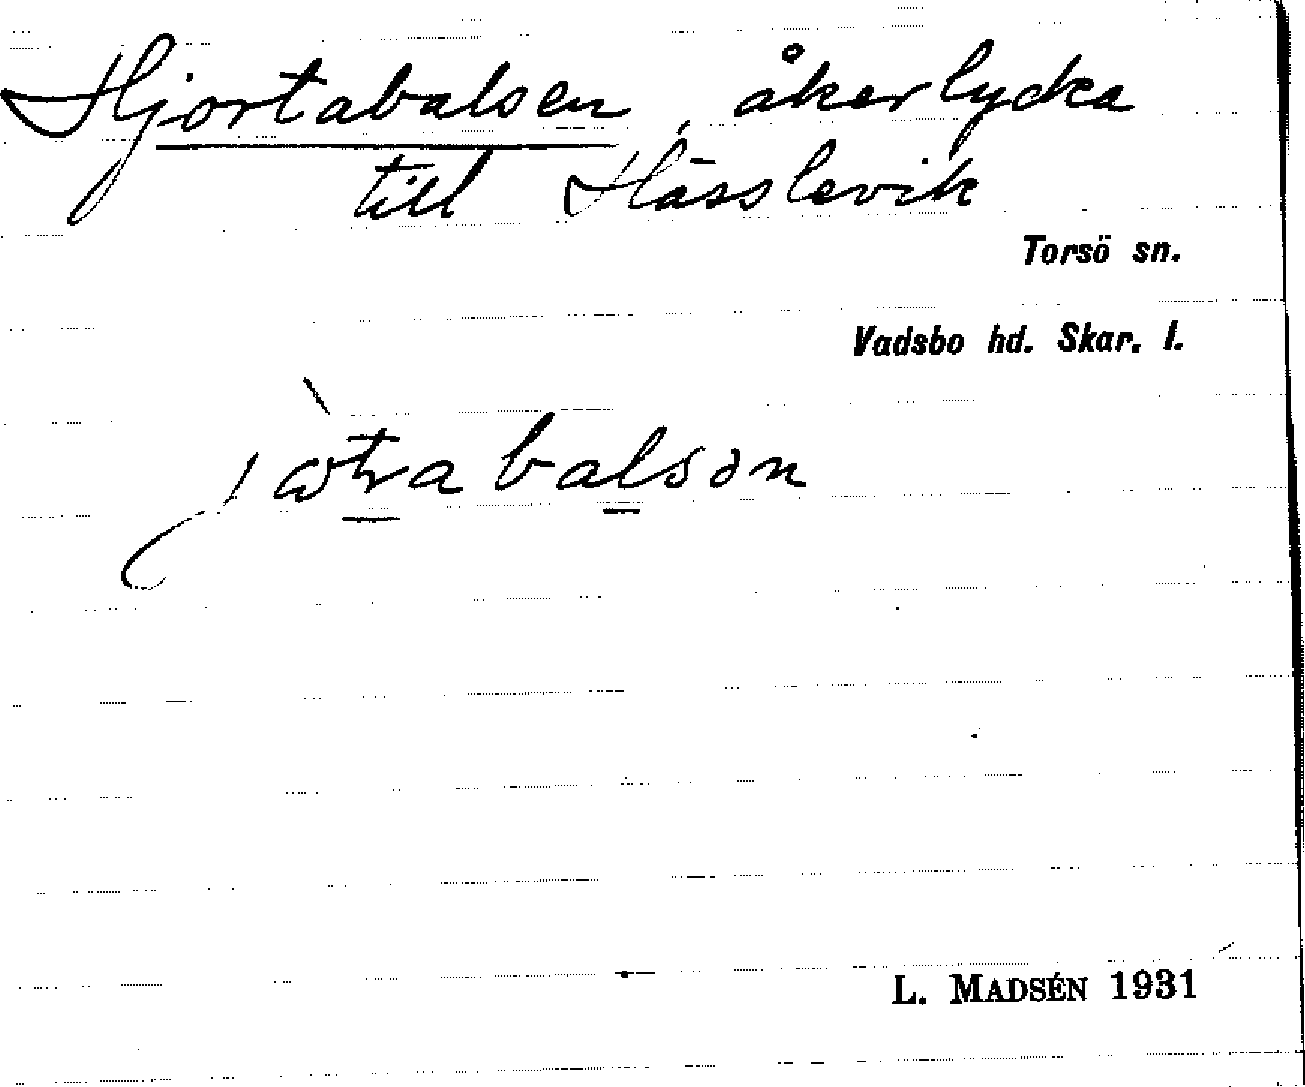 Hjortabalsen, åkerlycka
till Hässlevik
Torsö sn.
Vadsbo hd. Skar. l.
L. MADSÉN 1931